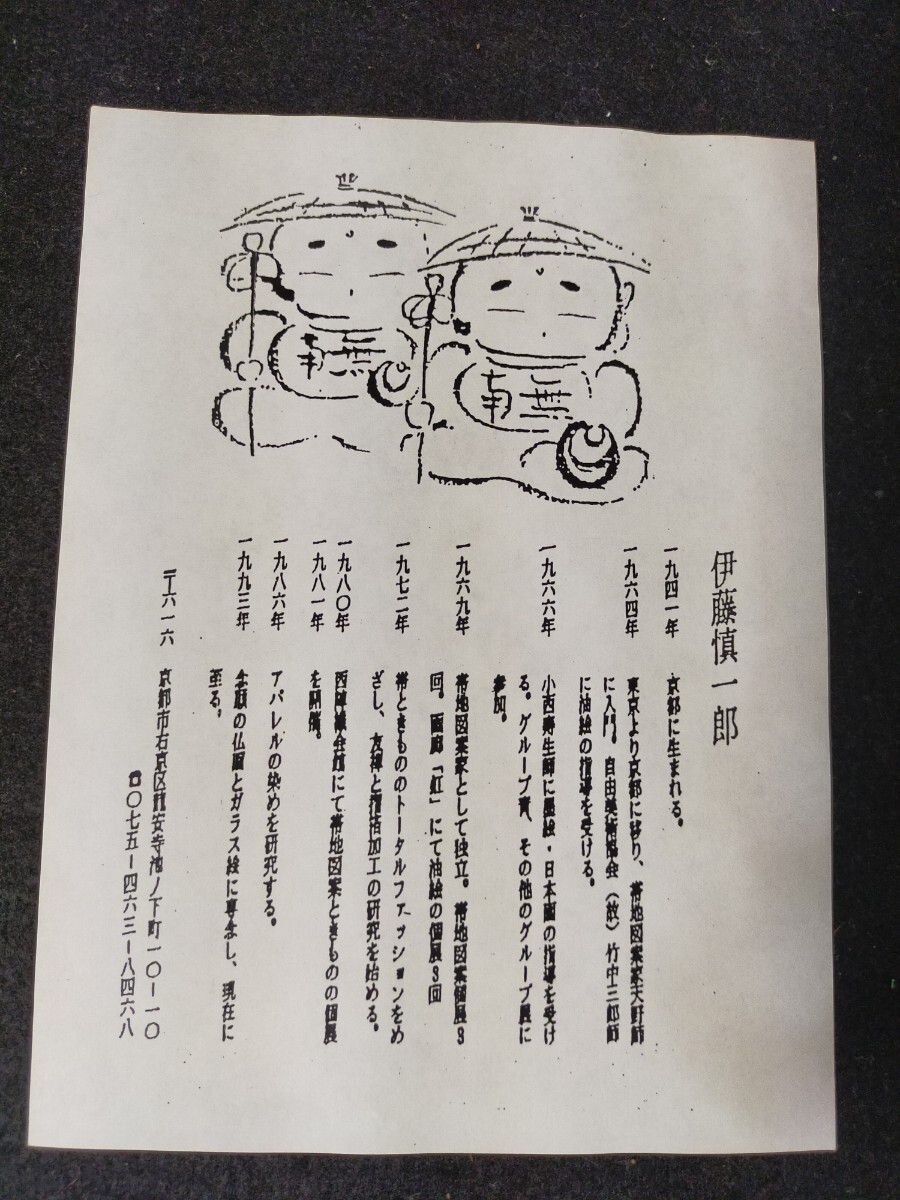 南無
南無
伊藤慎一郎
一九四一年 京都に生まれる。
一九六四年 東京より京都に移り、帯地図案家天野師
に入門。自由美術協会(故)竹中三郎師
に油絵の指導を受ける。
一九六六年 小西寿生師に墨絵・日本画の指導を受け
る。グループ青、その他のグループ展に
参加。
一九六九年 帯地図案家として独立。帯地図案個展3
回。画廊「虹」にて油絵の個展3回
一九七二年 帯ときもののトータルファッションをめ
ざし、友禅と箔加工の研究を始める。
一九八〇年 西陣織会館にて帯地図案ときものの個展
一九八一年 を開催。
一九八六年 アパレルの染めを研究する。
一九九三年 念願の仏画とガラス絵に専念し、現在に
至る。
〒六一六 京都市右京区龍安寺池ノ下町一〇-一〇
☎〇七五-四六三-八四六八